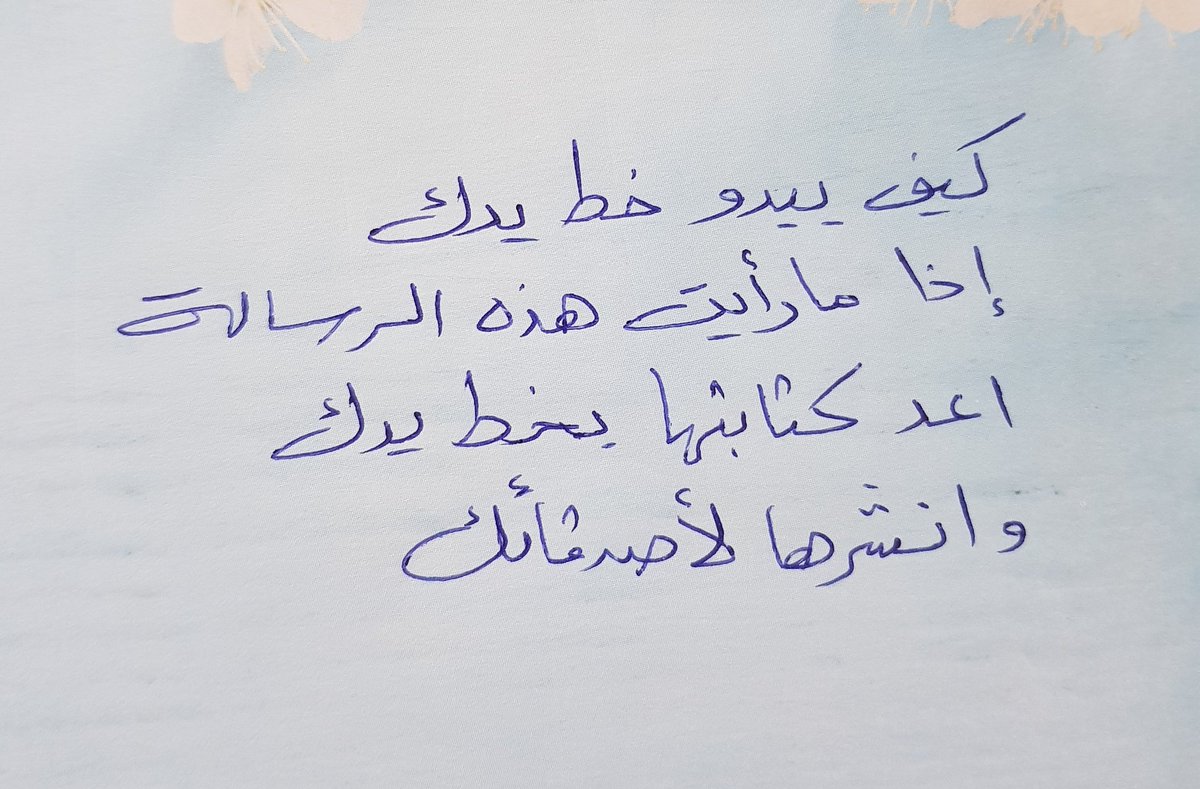 كيف يبدو خط يدك
إذا ما رأيت هذه الرسالة
اعد كتابتها بخط يدك
وانشرها لأصدقائك